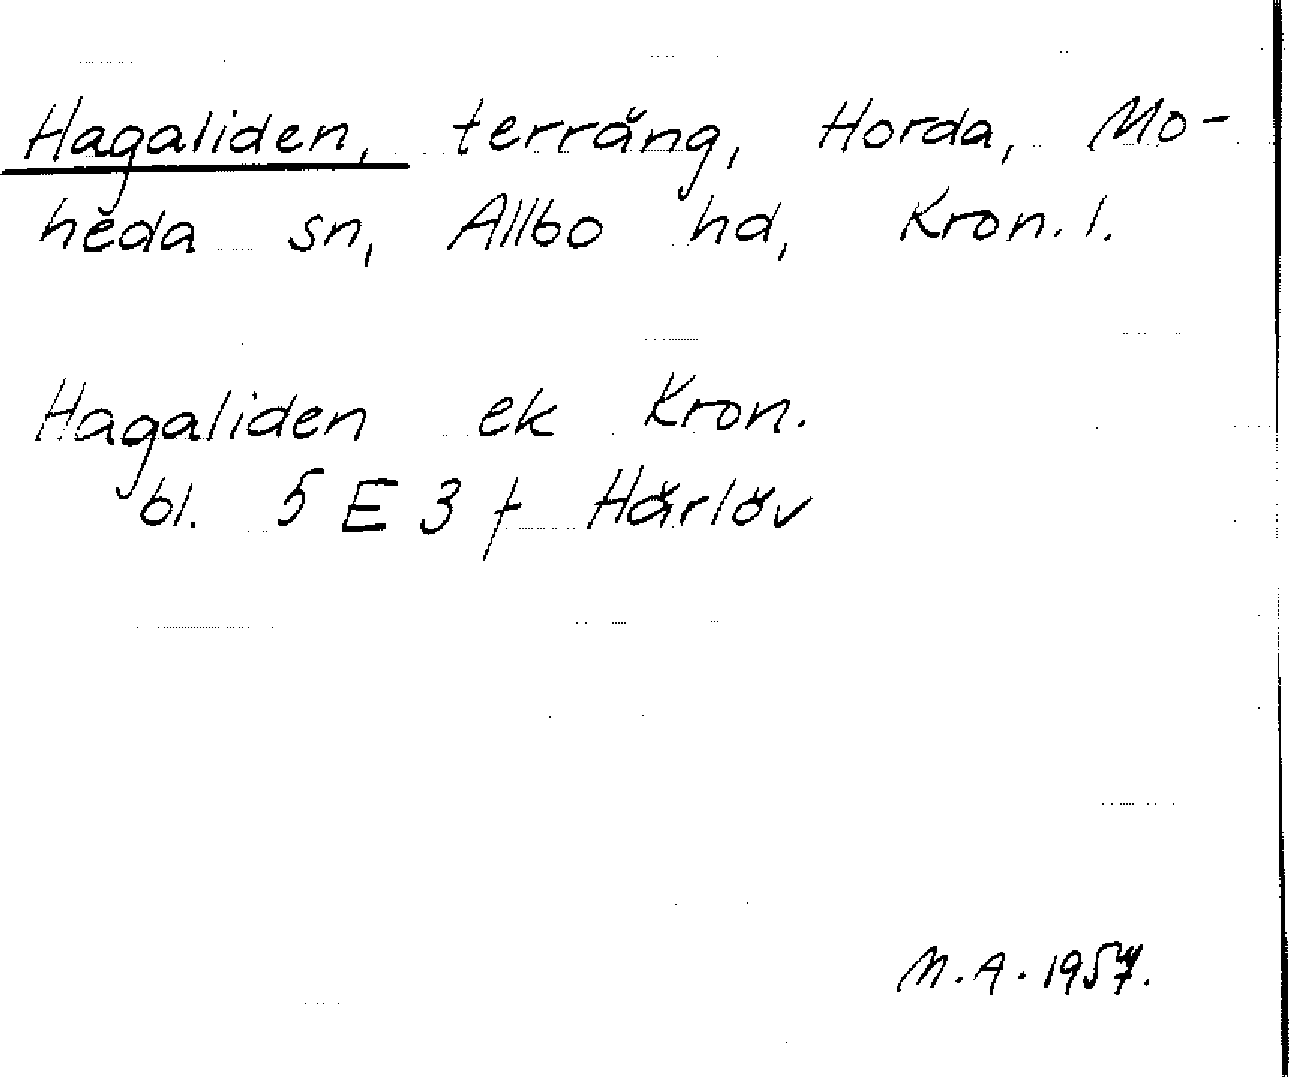 Hagaliden, terräng, Horda, Mo-
heda sn, Allbo hd, Kron. l.
Hagaliden ek Kron.
bl. 5 E 3 f Härlöv
M.A. 1957.